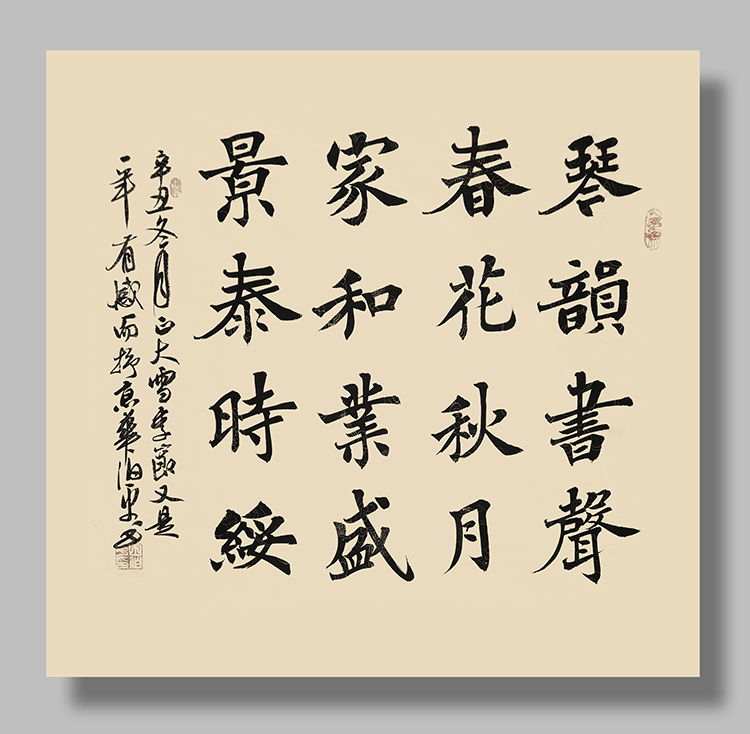 琴韻書聲
春花秋月
家和業盛
景泰時綏
辛丑冬月正大雪季節又是
一年有感而抒意華伯東书